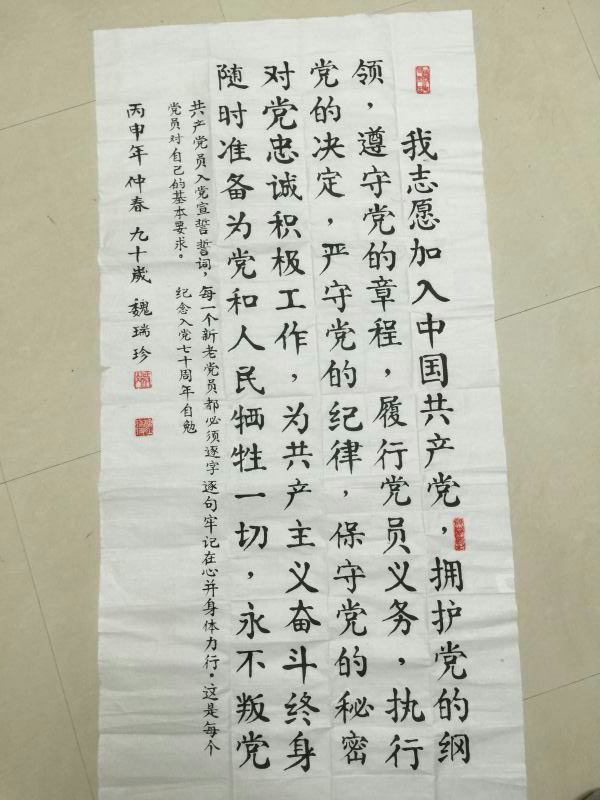 我志愿加入中国共产党，拥护党的纲
领，遵守党的章程，履行党员义务，执行
党的决定，严守党的纪律，保守党的秘密
对党忠诚积极工作，为共产主义奋斗终身
随时准备为党和人民牺牲一切，永不叛党
共产党员入党宣誓誓词，每一个新老党员都必须逐字逐句牢记在心并身体力行。这是每个
党员对自己的基本要求。 纪念入党七十周年自勉
丙申年仲春 九十岁 魏瑞珍